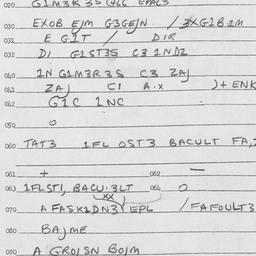 020 G1M3R 3S
030 EXOB EJM G3GEJN / 3XG1B1M
031 E G1T / DIR
032 D1 G1ST3S C3 1ND2
040 1N G1M3R3S C3 ZAJ
041 ZAJ C1 A.X )+ ENK
042 G1C 1NC
050 0
060 TAT3 1FL OST3 BACULT FA,
061 + 062 —
063 1FLST1, BACU.3LT 064 0
070 A FASK1DN3 EPL / FAFOULT3
080 BAJME
090 A GROJSN BOJM